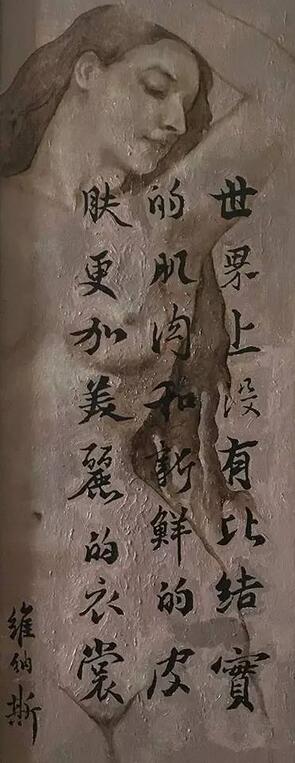 世界上没有比结實
的肌肉和新鮮的皮
肤更加美麗的衣裳
維納斯